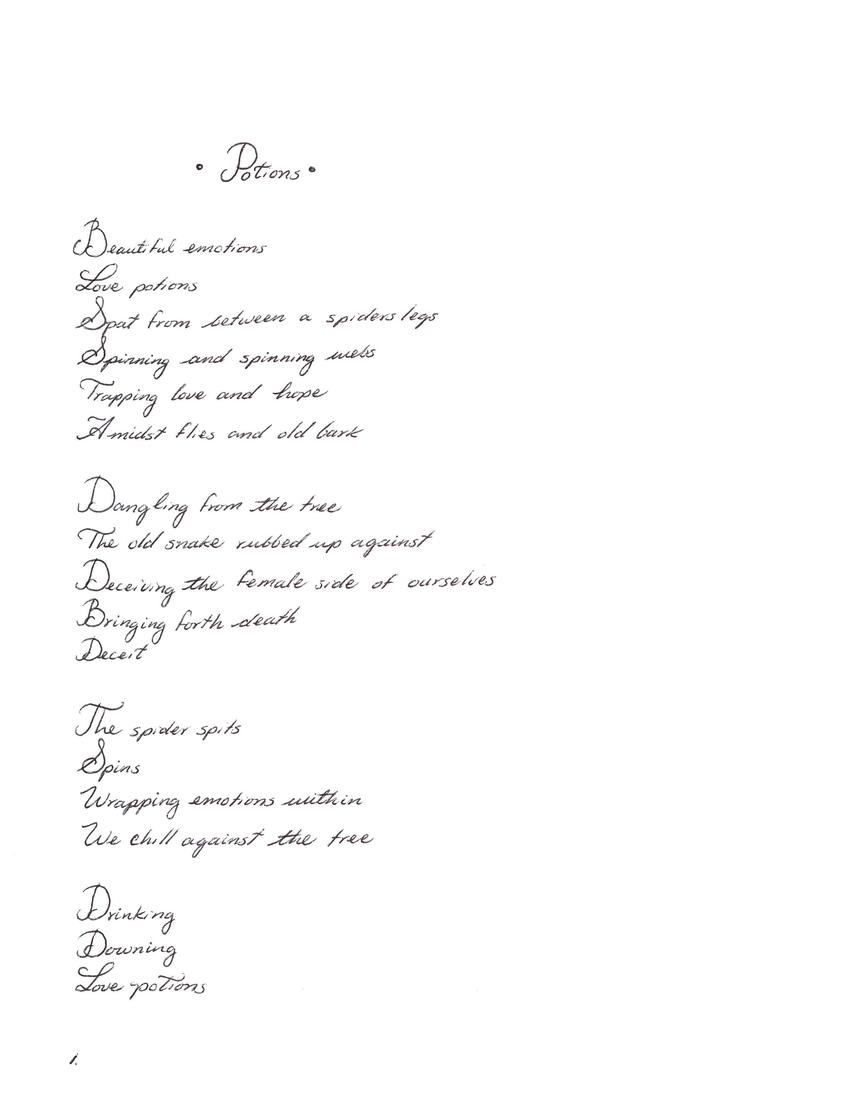 • Potions •
Beautiful emotions
Love potions
Spat from between a spiders legs
Spinning and spinning webs
Trapping love and hope
Amidst flies and old bark
Dangling from the tree
The old snake rubbed up against
Deceiving the female side of ourselves
Bringing forth death
Deceit
The spider spits
Spins
Wrapping emotions within
We chill against the tree
Drinking
Downing
Love potions
1.